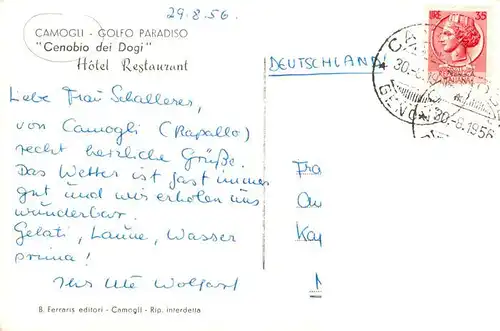 29.8.56.
CAMOGLI - GOLFO PARADISO
"Cenobio dei Dogi"
Hôtel Restaurant
DEUTSCHLAND
LIRE 35
30.-8.1956
30.-8.1956
GENO
Liebe Frau Schallerer,
von Camogli (Rapallo)
recht herzliche Grüße.
Das Wetter ist fast immer
gut und wir erholen uns
wunderbar.
Gelati, Laune, Wasser
prima!
Ihr Ute Wolfart
Fra
Kap
B. Ferraris editori - Camogli - Rip. interdetta